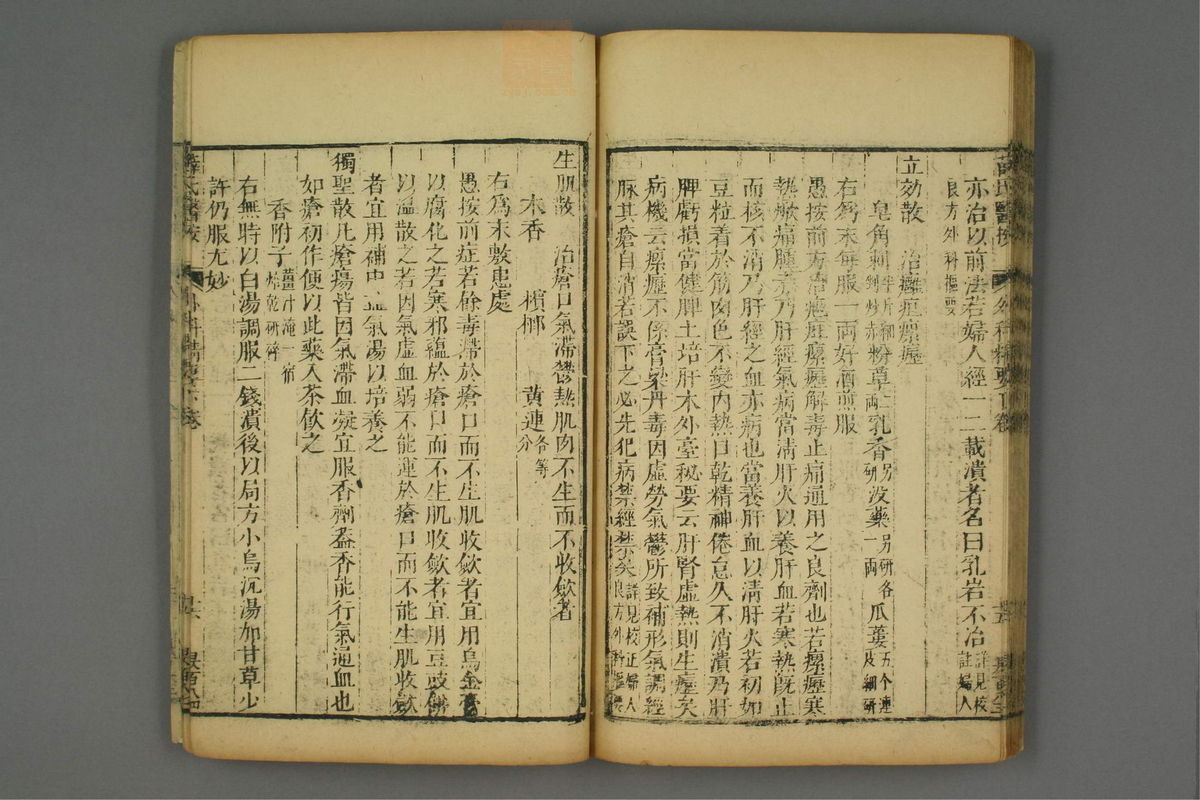 亦治以前法若婦人經一二載潰者名曰乳岩不治詳見校註婦人
良方外科樞要
立効散 治癰疽瘰癧
皂角刺半斤細剉炒赤粉草二兩乳香另研没藥另研各一兩瓜蔞五个連皮細研
右爲末每服一兩好酒煎服
愚按前方治癰疽瘰癧解毒止痛通用之良劑也若瘰癧寒
熱焮痛腫者乃肝經氣病當清肝火以養肝血若寒熱旣止
而核不消乃肝經之血亦病也當養肝血以清肝火若初如
豆粒着於筋肉色不變内熱口乾精神倦怠久不消潰乃肝
脾虧損當健脾土培肝木外臺秘要云肝腎虚熱則生癧矣
病機云瘰癧不係膏粱丹毒因虚勞氣鬱所致補形氣調經
脉其瘡自消若誤下之必先犯病禁經禁矣詳見校正婦人良方外科樞要
生肌散 治瘡口氣滯鬱熱肌肉不生而不收斂者
木香 檳榔 黄連各等分
右爲末敷患處
愚按前症若餘毒滯於瘡口而不生肌收斂者宜用烏金膏
以腐化之若寒邪蘊於瘡口而不生肌收斂者宜用豆豉餅
以温散之若因氣虚血弱不能運於瘡口而不能生肌收斂
者宜用補中益氣湯以培養之
獨聖散凡瘡瘍皆因氣滯血凝宜服香劑葢香能行氣通血也
如瘡初作便以此藥入茶飲之
香附子薑汁淹一宿焙乾研碎
右無時以白湯調服二錢潰後以局方小烏沉湯加甘草少
許仍服尤妙